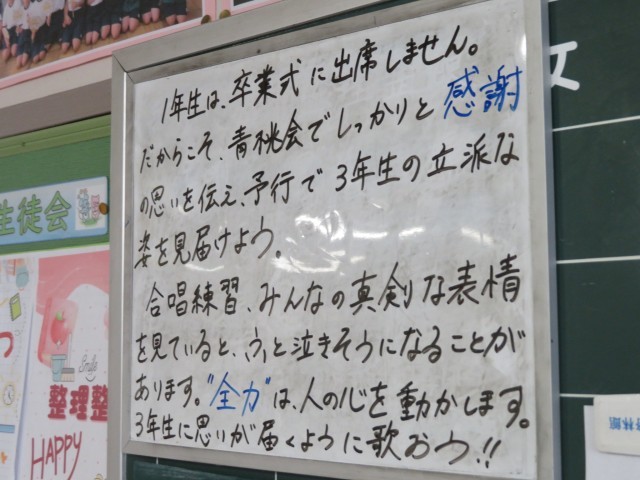 1年生は、卒業式に出席しません。
だからこそ、青桃会でしっかりと感謝
の思いを伝え、予行で3年生の立派な
姿を見届けよう。
合唱練習、みんなの真剣な表情
を見ていると、ふと泣きそうになることが
あります。"全力"は、人の心を動かします。
3年生に思いが届くように歌おう!!
生徒会
Smile
整理整
HAPPY